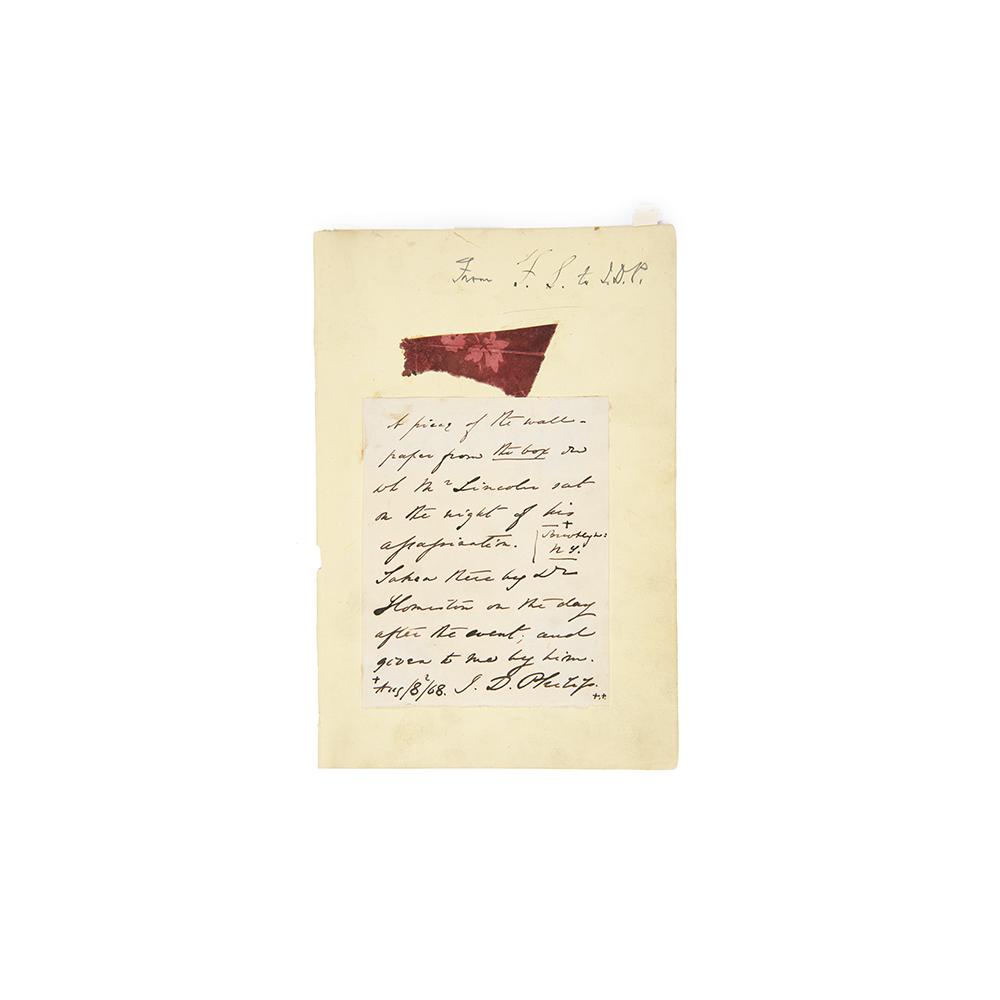 From F. S. to J.D.P.
A piece of the wall-
paper from the box in
wh Mr Lincoln sat
on the night of his
assassination. Brooklyn:
N Y.
Taken there by Dr
Homiston on the day
after the event; and
given to me by him.
Aug/8/68. J. D. Philips.